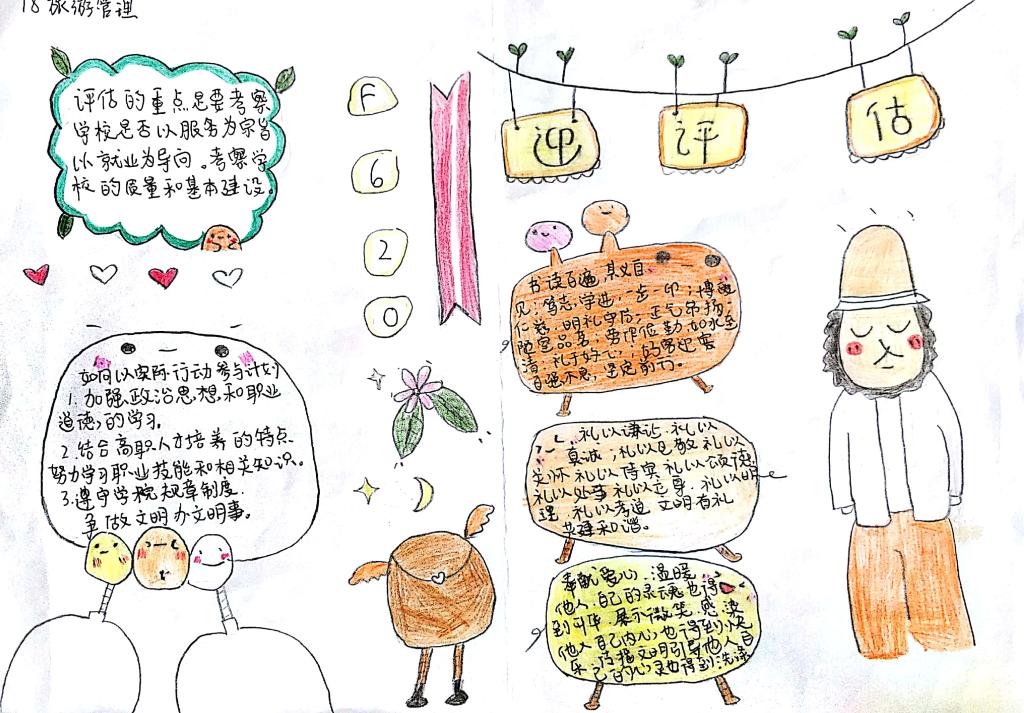 18旅游管理
迎
评
估
评估的重点是要考察
学校是否以服务为宗旨
以就业为导向。考察学
校的质量和基本建设。
F
6
2
0
如何以实际行动参与计划
1.加强政治思想,和职业
道德,的学习。
2.结合高职人才培养的特点
努力学习职业技能和相关知识。
3.遵守学院规章制度.
争做文明办文明事。
书读百遍,其义自
见;笃志,学进,一步一印;博
仁慈,明礼守信;正气昂扬
陋室品茗;劳作俭勤,如水至
清,礼于好心
自强不息,坚定前行。
礼以谦让,礼以
真诚;礼以包敬礼以
关怀礼以待宾礼以颂德
礼以处事礼以立身,礼以明
理,礼以孝道 文明有礼
共建和谐。
奉献爱心,温暖
他人,自己的灵魂也得
到升华,展示微笑,感染
他人自己内心,也得到快
乐,传播文明引导他人自
己的心灵也得到洗涤